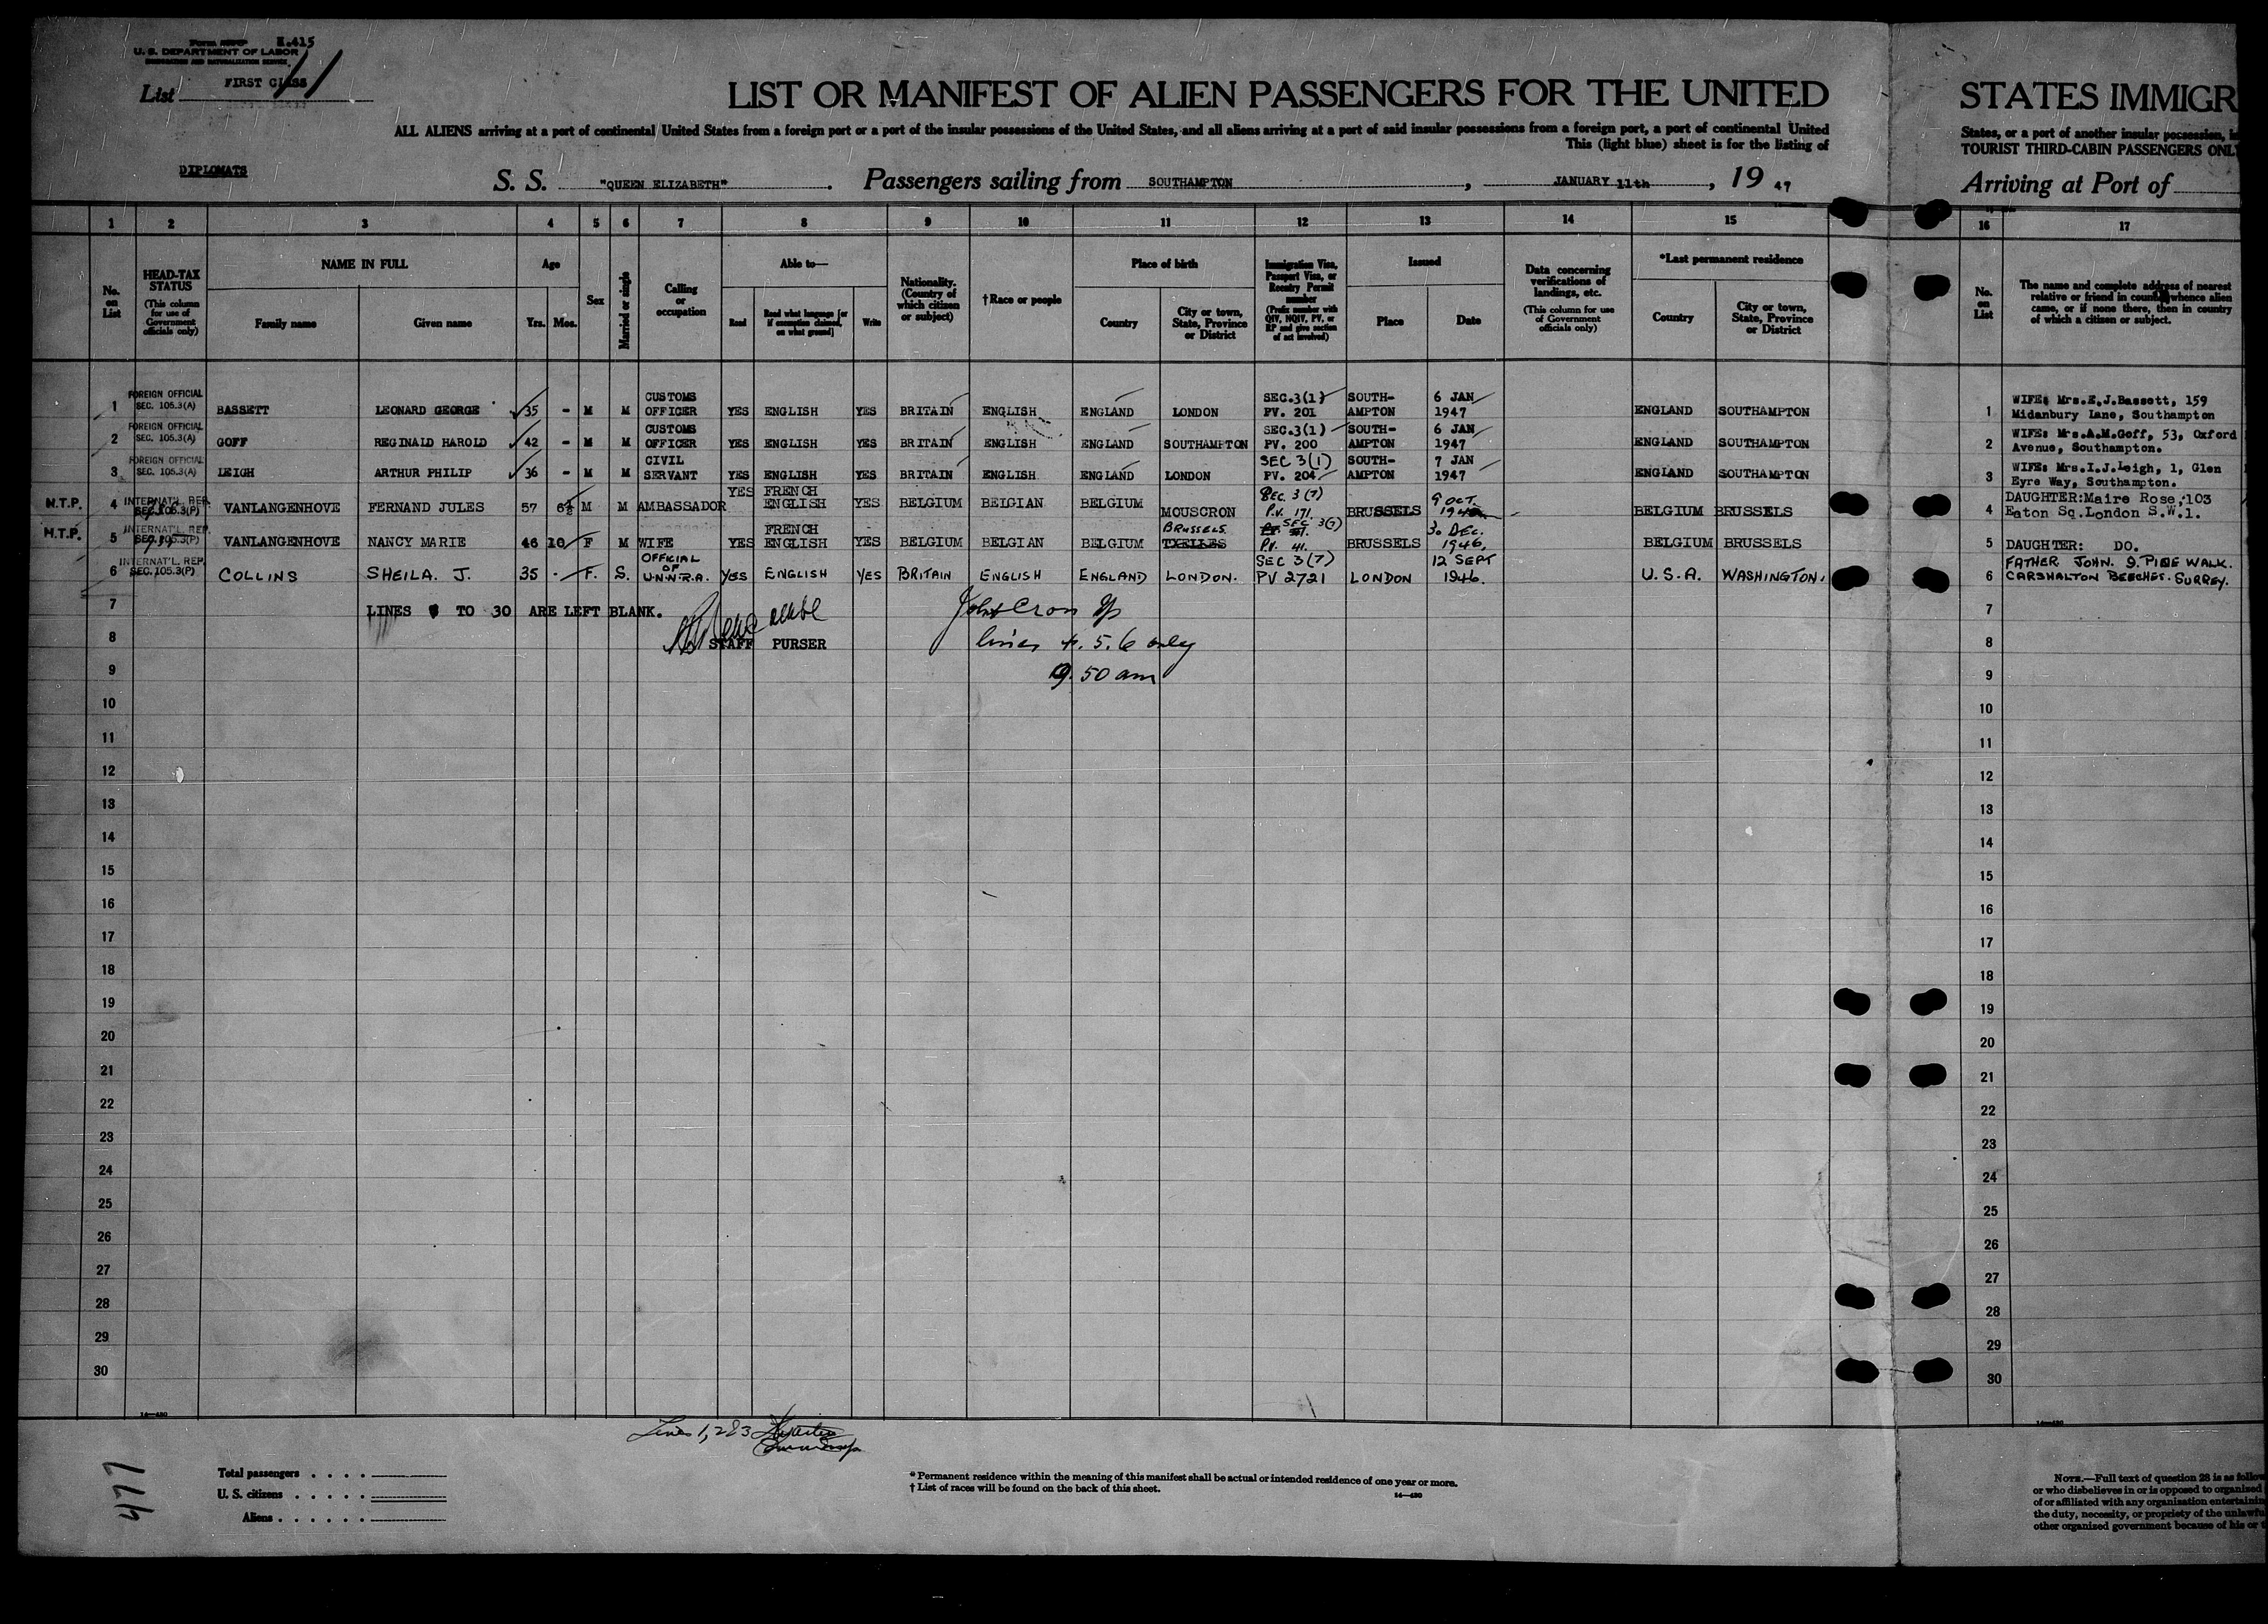 Form E.415
U. S. DEPARTMENT OF LABOR
IMMIGRATION AND NATURALIZATION SERVICE
List FIRST CLASS
LIST OR MANIFEST OF ALIEN PASSENGERS FOR THE UNITED
ALL ALIENS arriving at a port of continental United States from a foreign port or a port of the insular possessions of the United States, and all aliens arriving at a port of said insular possessions from a foreign port, a port of continental United
This (light blue) sheet is for the listing of
DIPLOMATS
S. S. "QUEEN ELIZABETH". Passengers sailing from SOUTHAMPTON, JANUARY 11th, 19 47
STATES IMMIGR
States, or a port of another insular possession, i
TOURIST THIRD-CABIN PASSENGERS ONL
Arriving at Port of
1 2 3 4 5 6 7 8 9 10 11 12 13 14 15 16 17
No. on List
HEAD-TAX STATUS (This column for use of Government officials only)
NAME IN FULL
Family name
Given name
Age
Yrs. Mos.
Sex
Married or single
Calling or occupation
Able to—
Read
Read what language [or if exemption claimed, on what ground]
Write
Nationality. (Country of which citizen or subject)
†Race or people
Place of birth
Country
City or town, State, Province or District
Immigration Visa, Passport Visa, or Reentry Permit number (Prefix number with QIV, NQIV, PV, or RP and give section of act involved)
Issued
Place
Date
Data concerning verifications of landings, etc. (This column for use of Government officials only)
*Last permanent residence
Country
City or town, State, Province or District
No. on List
The name and complete address of nearest relative or friend in country whence alien came, or if none there, then in country of which a citizen or subject.
1 FOREIGN OFFICIAL SEC. 105.3(A) BASSETT LEONARD GEORGE 35 - M M CUSTOMS OFFICER YES ENGLISH YES BRITAIN ENGLISH ENGLAND LONDON SEC.3(1) PV. 201 SOUTH-AMPTON 6 JAN 1947 ENGLAND SOUTHAMPTON 1 WIFE: Mrs.E.J.Bassett, 159 Midanbury Lane, Southampton
2 FOREIGN OFFICIAL SEC. 105.3(A) GOFF REGINALD HAROLD 42 - M M CUSTOMS OFFICER YES ENGLISH YES BRITAIN ENGLISH ENGLAND SOUTHAMPTON SEC.3(1) PV. 200 SOUTH-AMPTON 6 JAN 1947 ENGLAND SOUTHAMPTON 2 WIFE: Mrs.A.M.Goff, 53, Oxford Avenue, Southampton.
3 FOREIGN OFFICIAL SEC. 105.3(A) LEIGH ARTHUR PHILIP 36 - M M CIVIL SERVANT YES ENGLISH YES BRITAIN ENGLISH ENGLAND LONDON SEC 3(1) PV. 204 SOUTH-AMPTON 7 JAN 1947 ENGLAND SOUTHAMPTON 3 WIFE: Mrs.I.J.Leigh, 1, Glen Eyre Way, Southampton.
N.T.P. 4 INTERNAT'L. REP. SEC. 105.3(P) VANLANGENHOVE FERNAND JULES 57 6½ M M AMBASSADOR YES FRENCH ENGLISH YES BELGIUM BELGIAN BELGIUM MOUSCRON SEC. 3(7) P.V. 171. BRUSSELS 9 OCT. 194 BELGIUM BRUSSELS 4 DAUGHTER:Maire Rose,103 Eaton Sq.London S.W.1.
N.T.P. 5 INTERNAT'L. REP. SEC. 105.3(P) VANLANGENHOVE NANCY MARIE 46 10 F M WIFE YES FRENCH ENGLISH YES BELGIUM BELGIAN BELGIUM BRUSSELS IXELLES SEC 3(7) P.V. 41. BRUSSELS 30 DEC. 1946, BELGIUM BRUSSELS 5 DAUGHTER: DO.
6 INTERNAT'L. REP. SEC. 105.3(P) COLLINS SHEILA. J. 35 - F. S. OFFICIAL OF U.N.N.R.A. YES ENGLISH YES BRITAIN ENGLISH ENGLAND LONDON. SEC 3(7) PV 2721 LONDON 12 SEPT 1946. U.S.A. WASHINGTON. 6 FATHER JOHN. 9. PINE WALK. CARSHALTON BEECHES. SURREY.
7 LINES TO 30 ARE LEFT BLANK. John Cron 7
8 STAFF PURSER lines 4. 5. 6 only 8
9 9.50 am 9
10 10
11 11
12 12
13 13
14 14
15 15
16 16
17 17
18 18
19 19
20 20
21 21
22 22
23 23
24 24
25 25
26 26
27 27
28 28
29 29
30 30
14—430
Lines 1, 2 & 3
477
Total passengers
U. S. citizens
Aliens
* Permanent residence within the meaning of this manifest shall be actual or intended residence of one year or more.
† List of races will be found on the back of this sheet.
14—430
NOTE.—Full text of question 28 is as follow
or who disbelieves in or is opposed to organized
of or affiliated with any organization entertainin
the duty, necessity, or propriety of the unlawfu
other organized government because of his or